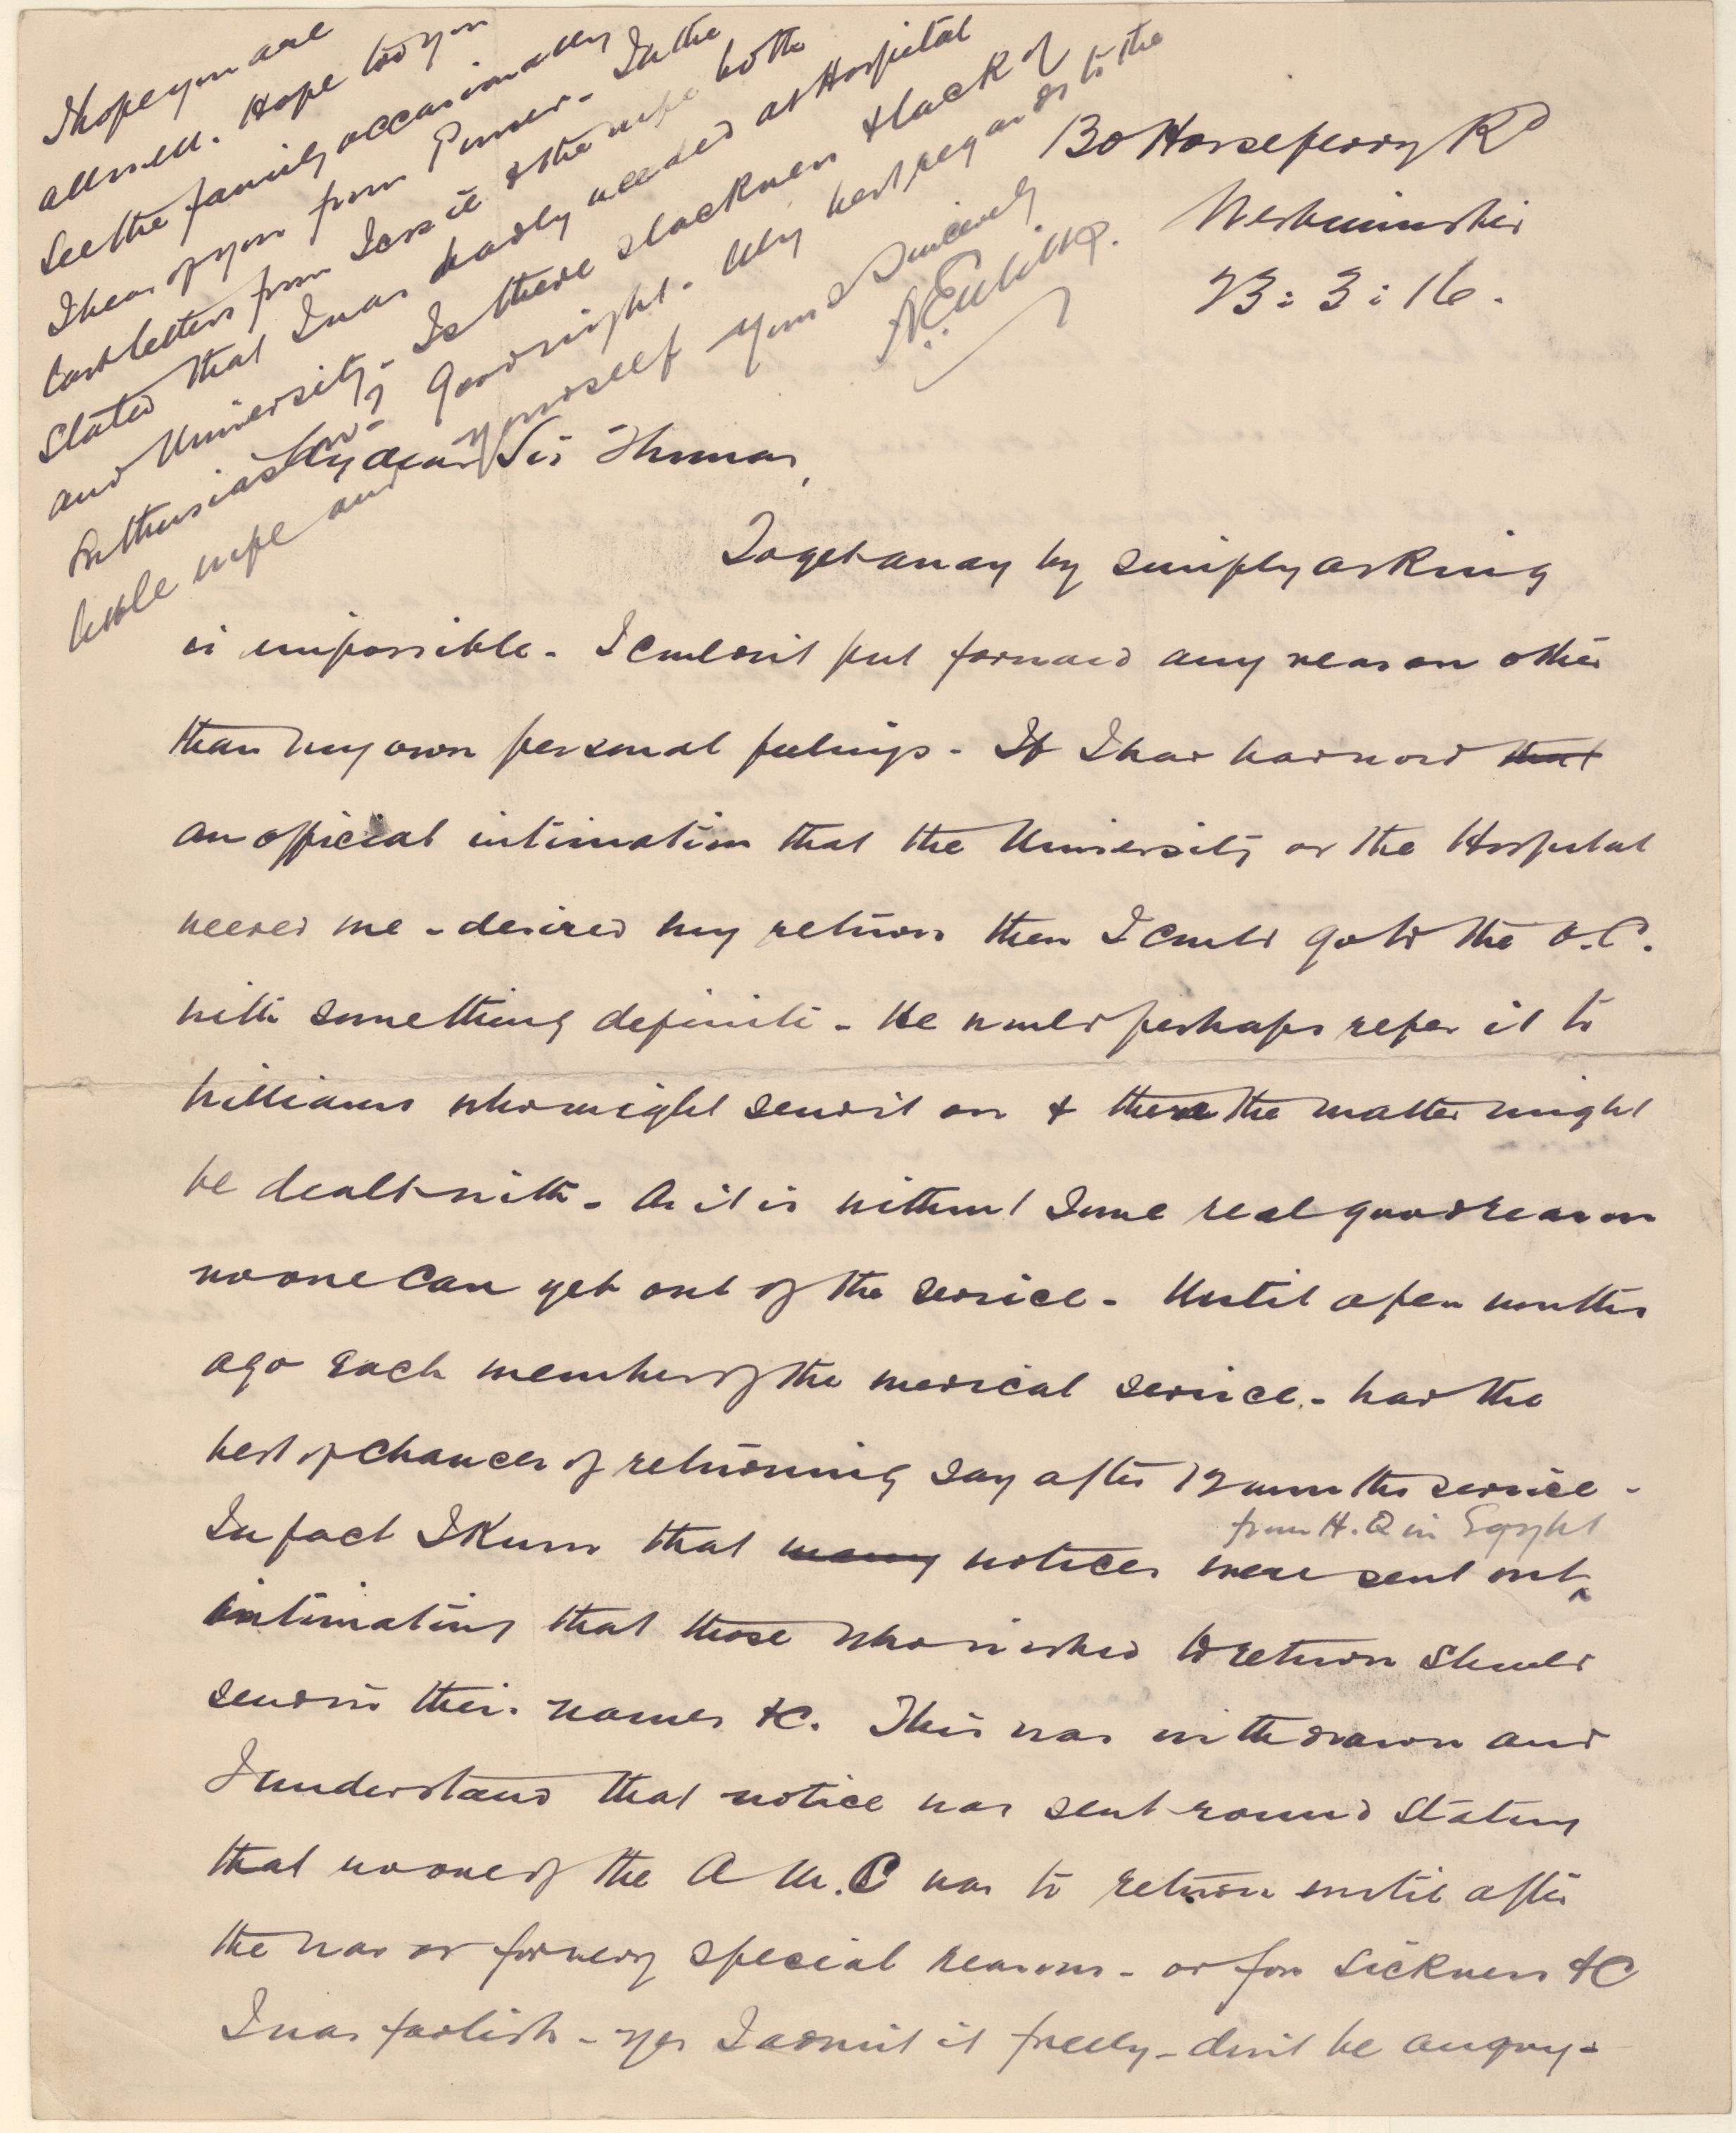 130 Horseferry Rd
Westminster
23: 3: 16.
My dear Sir Thomas,
To get away by simply asking
is impossible - I couldn't put forward any reason other
than my own personal feelings - If I had had word that
an official intimation that the University or the Hospital
needed me - desired my return then I could go to the O.C.
with something definite - He would perhaps refer it to
Williams who might send it on & then the matter might
be dealt with - As it is without some real good reason
no one can get out of the service - Until a few months
ago each member of the medical service - had the
best of chances of returning say after 12 months service -
In fact I know that many notices were sent out
from H.Q in Egypt
intimating that those who wished to return should
send in their names &c. This was withdrawn and
I understand that notice was sent round stating
that no one of the A M.C was to return until after
the war or for very special reasons - or for sickness &c
I was foolish - yes I admit it freely - don't be angry -
I hope you are
all well. Hope too you
see the family occasionally
I hear of you from - In the
last letters from Jessie & the wife both
stated that I was badly needed at Hospital
and University - Is there slackness & lack of
enthusiasm? Good night - My best regards to the
little wife and yourself Yours Sincerely